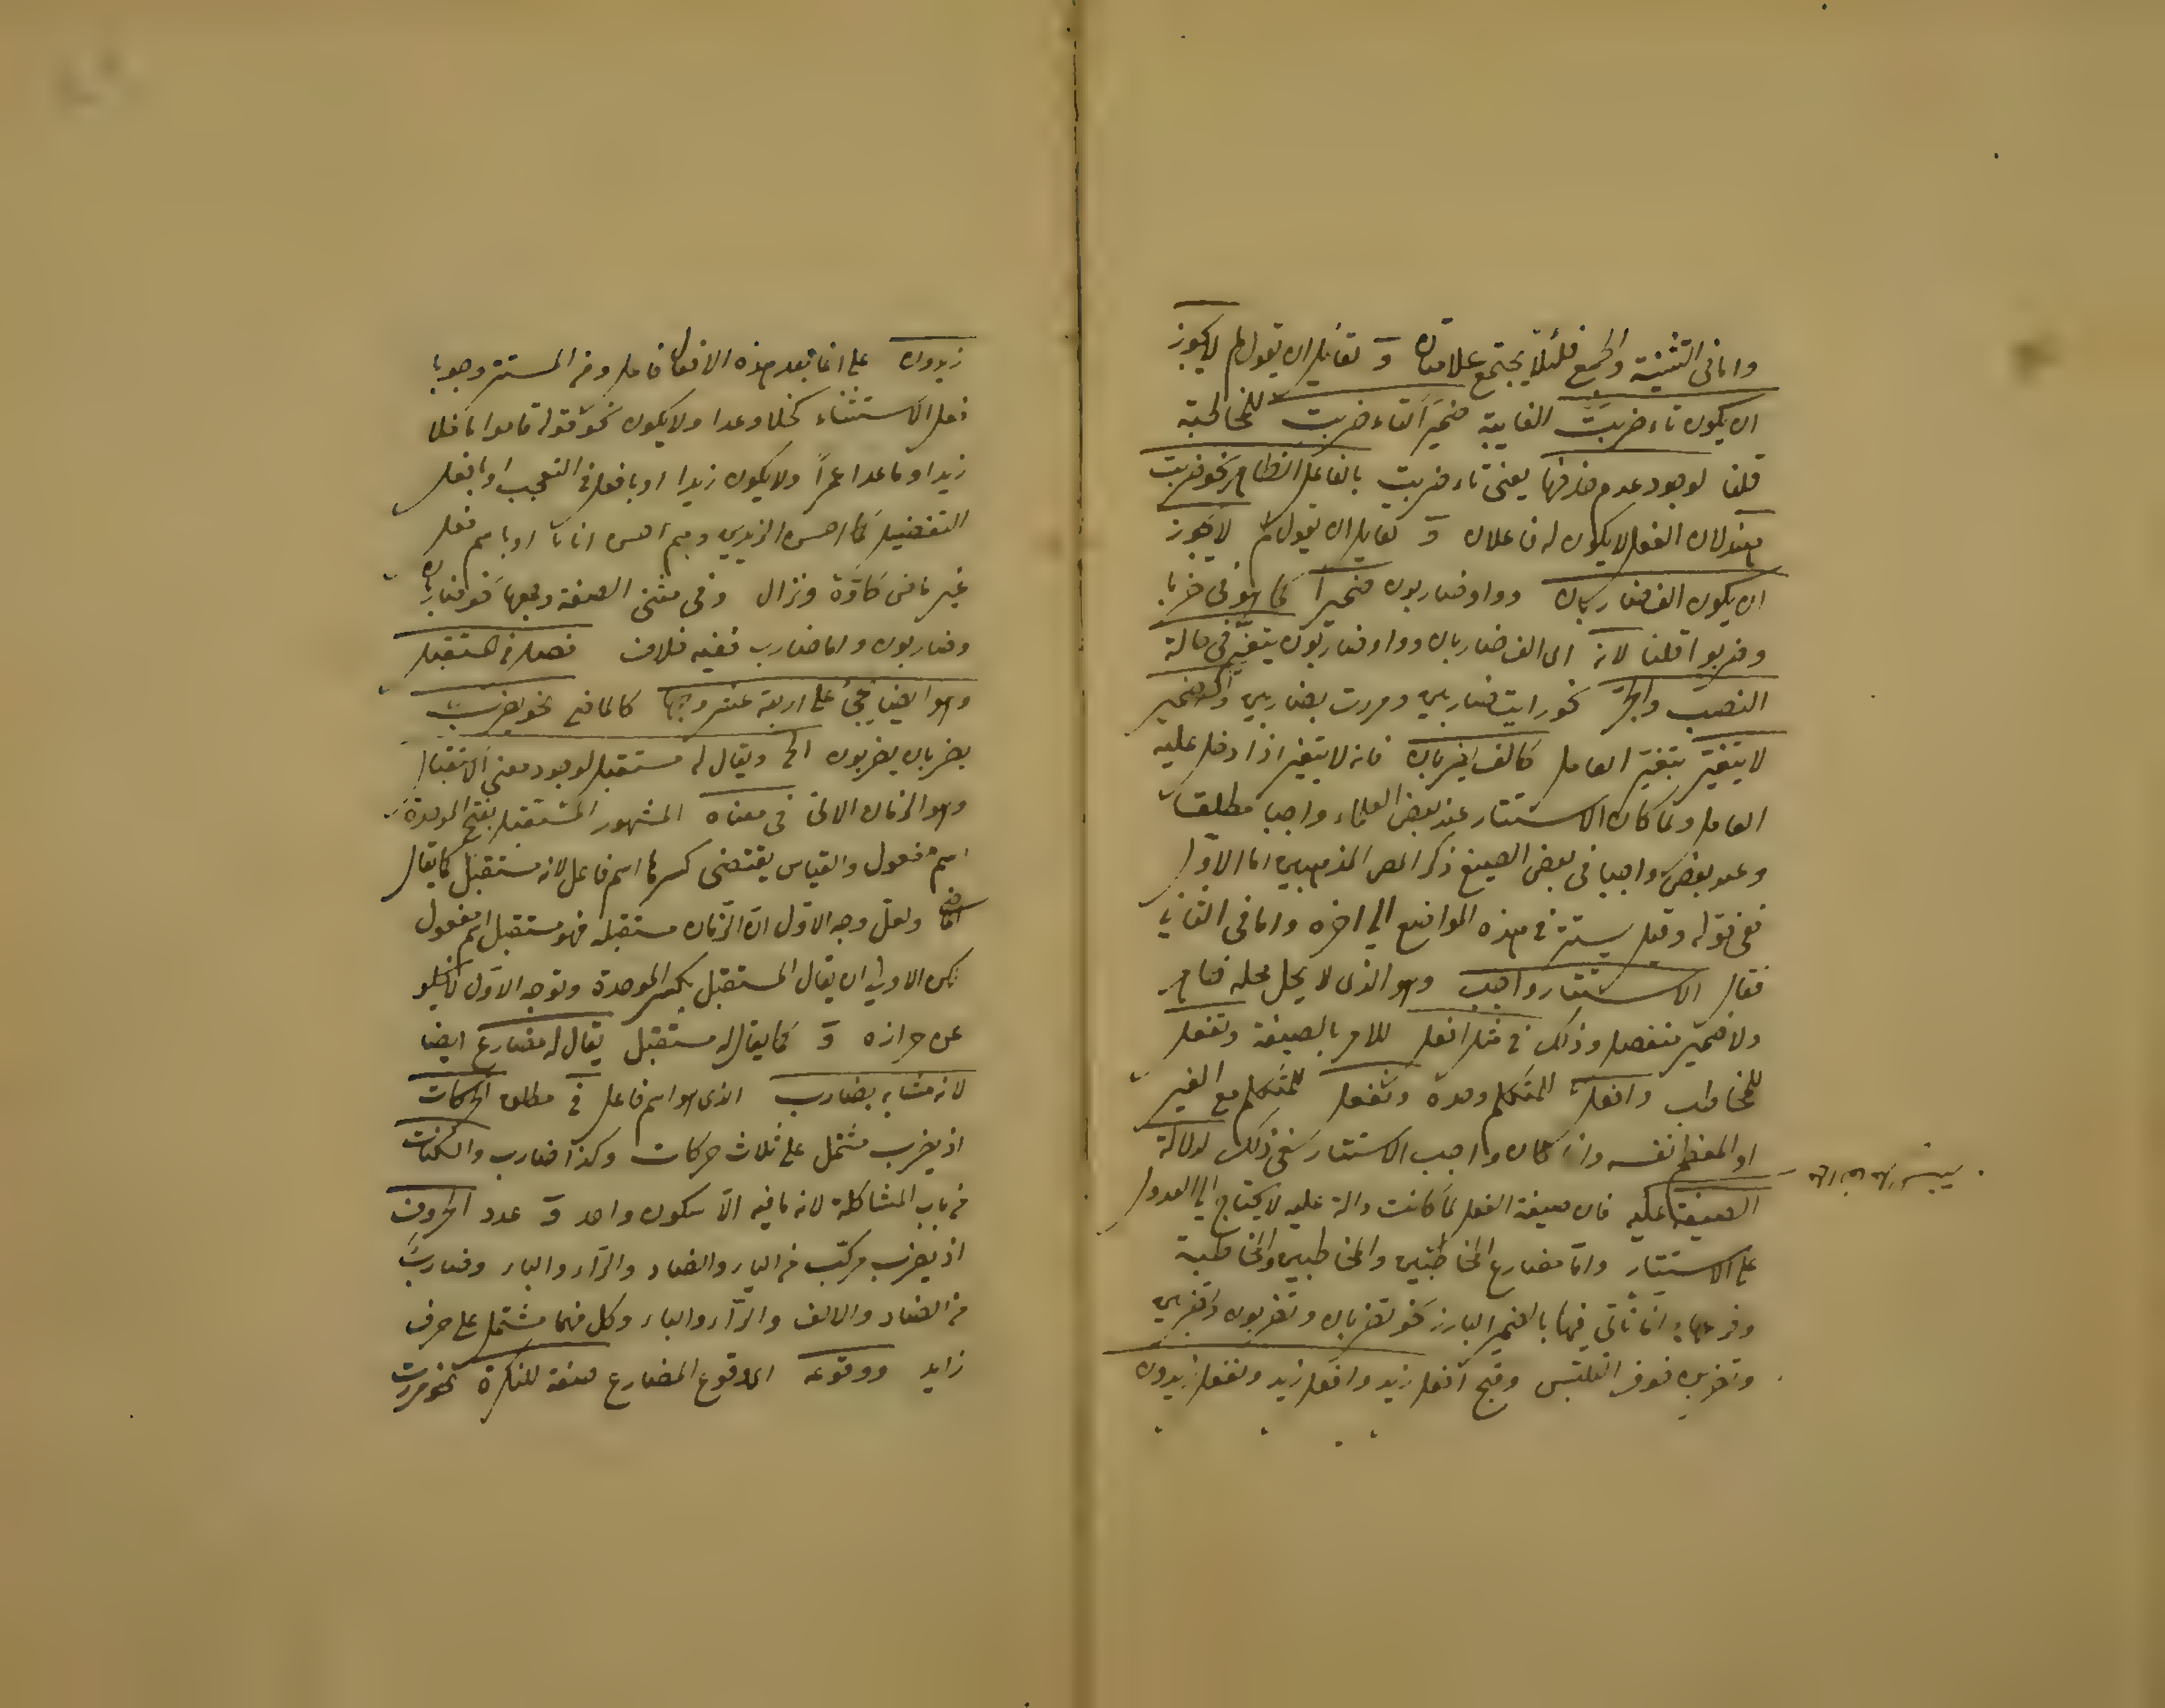 واما فى التثنية والجمع فلئلا يجتمع علامتان و لقائل ان يقول لم لا يجوز
ان يكون تاء ضربت الغايبة ضميرا كتاء ضربت للمخاطبة
قلنا لوجود عدم حذفها يعنى تاء ضربت بالفاعل الظاهر نحو ضربت
هند لان الفعل لا يكون له فاعلان و لقايل ان يقول لم لا يجوز
ان يكون الف ضاربان وواو ضاربون ضميرا كما هو فى ضربا
وضربوا قلنا لانه اى الف ضاربان وواو ضاربون يتغير فى حالة
النصب والجر نحو رايت ضاربين ومررت بضاربين والضمير
لا يتغير بتغير العامل كالف يضربان فانه لا يتغير اذا دخل عليه
العامل ولما كان الاستتار عند بعض العلماء واجبا مطلقا
وعند بعض واجبا فى بعض الصيغ ذكر المص المذهبين اما الاول
ففى قوله وقيل يستتر فى هذه المواضع الى اخره واما فى الثانى
فقال الاستتار واجب وهو الذى لا يحل محله ظاهر
ولا ضمير منفصل وذلك فى مثل افعل للامر بالصيغة وتفعل
للمخاطب وافعل للمتكلم وحده ونفعل للمتكلم مع الغير
او المعظم نفسه وان كان واجب الاستتار ففى ذلك لدلالة
الصيغة عليه فان صيغة الفعل لما كانت دالة عليه لا يحتاج الى العدول
على الاستتار واما مضارع المخاطبين والمخاطبين والمخاطبة
وفرعها انما تاتى فيها بالضمير البارز نحو تضربان وتضربون وتضربين
وتضربن خوف التلبس وقبح افعل زيد وافعل زيد ونفعل زيدون
زيدون على انما بعد هذه الافعال فاعل ومن المستتر وجوبا
فعل الاستثناء كخلا وعدا ولا يكون نحو قوله قاموا ما خلا
زيدا وما عدا عمرا ولا يكون زيدا او بافعل فى التعجب او بافعل
التفضيل كما احسن الزيدين وهم احسن اثاثا او باسم فعل
غير ماض كاوه ونزال وفى مثنى الصفة وجمعها نحو ضاربان
وضاربون واما ضارب ففيه خلاف فصل فى المستقبل
وهو ايضا يجئ على اربعة عشر وجها كالماضى نحو يضرب
يضربان يضربون الخ ويقال له مستقبل لوجود معنى الاستقبال
وهو الزمان الاتى فى معناه المشهور المستقبل بفتح الموحدة
اسم مفعول والقياس يقتضى كسرها اسم فاعل لانه مستقبل كما يقال
الماضى ولعل وجه الاول ان الزمان مستقبله فهو مستقبل اسم مفعول
لكن الاولى ان يقال المستقبل بكسر الموحدة وتوجه الاول لا يخلو
عن حزازه و كما يقال له مستقبل يقال له مضارع ايضا
لانه مشابه بضارب الذى هو اسم فاعل فى مطلق الحركات
اذ يضرب مشتمل على ثلاث حركات وكذا ضارب والسكنات
من باب المشاكلة لانه ما فيه الا سكون واحد و عدد الحروف
اذ يضرب مركب من الياء والضاد والراء والباء وضارب
من الضاد والالف والراء والباء وكل منهما مشتمل على حرف
زايد ووقوعه اى وقوع المضارع صفة للنكرة نحو مررت